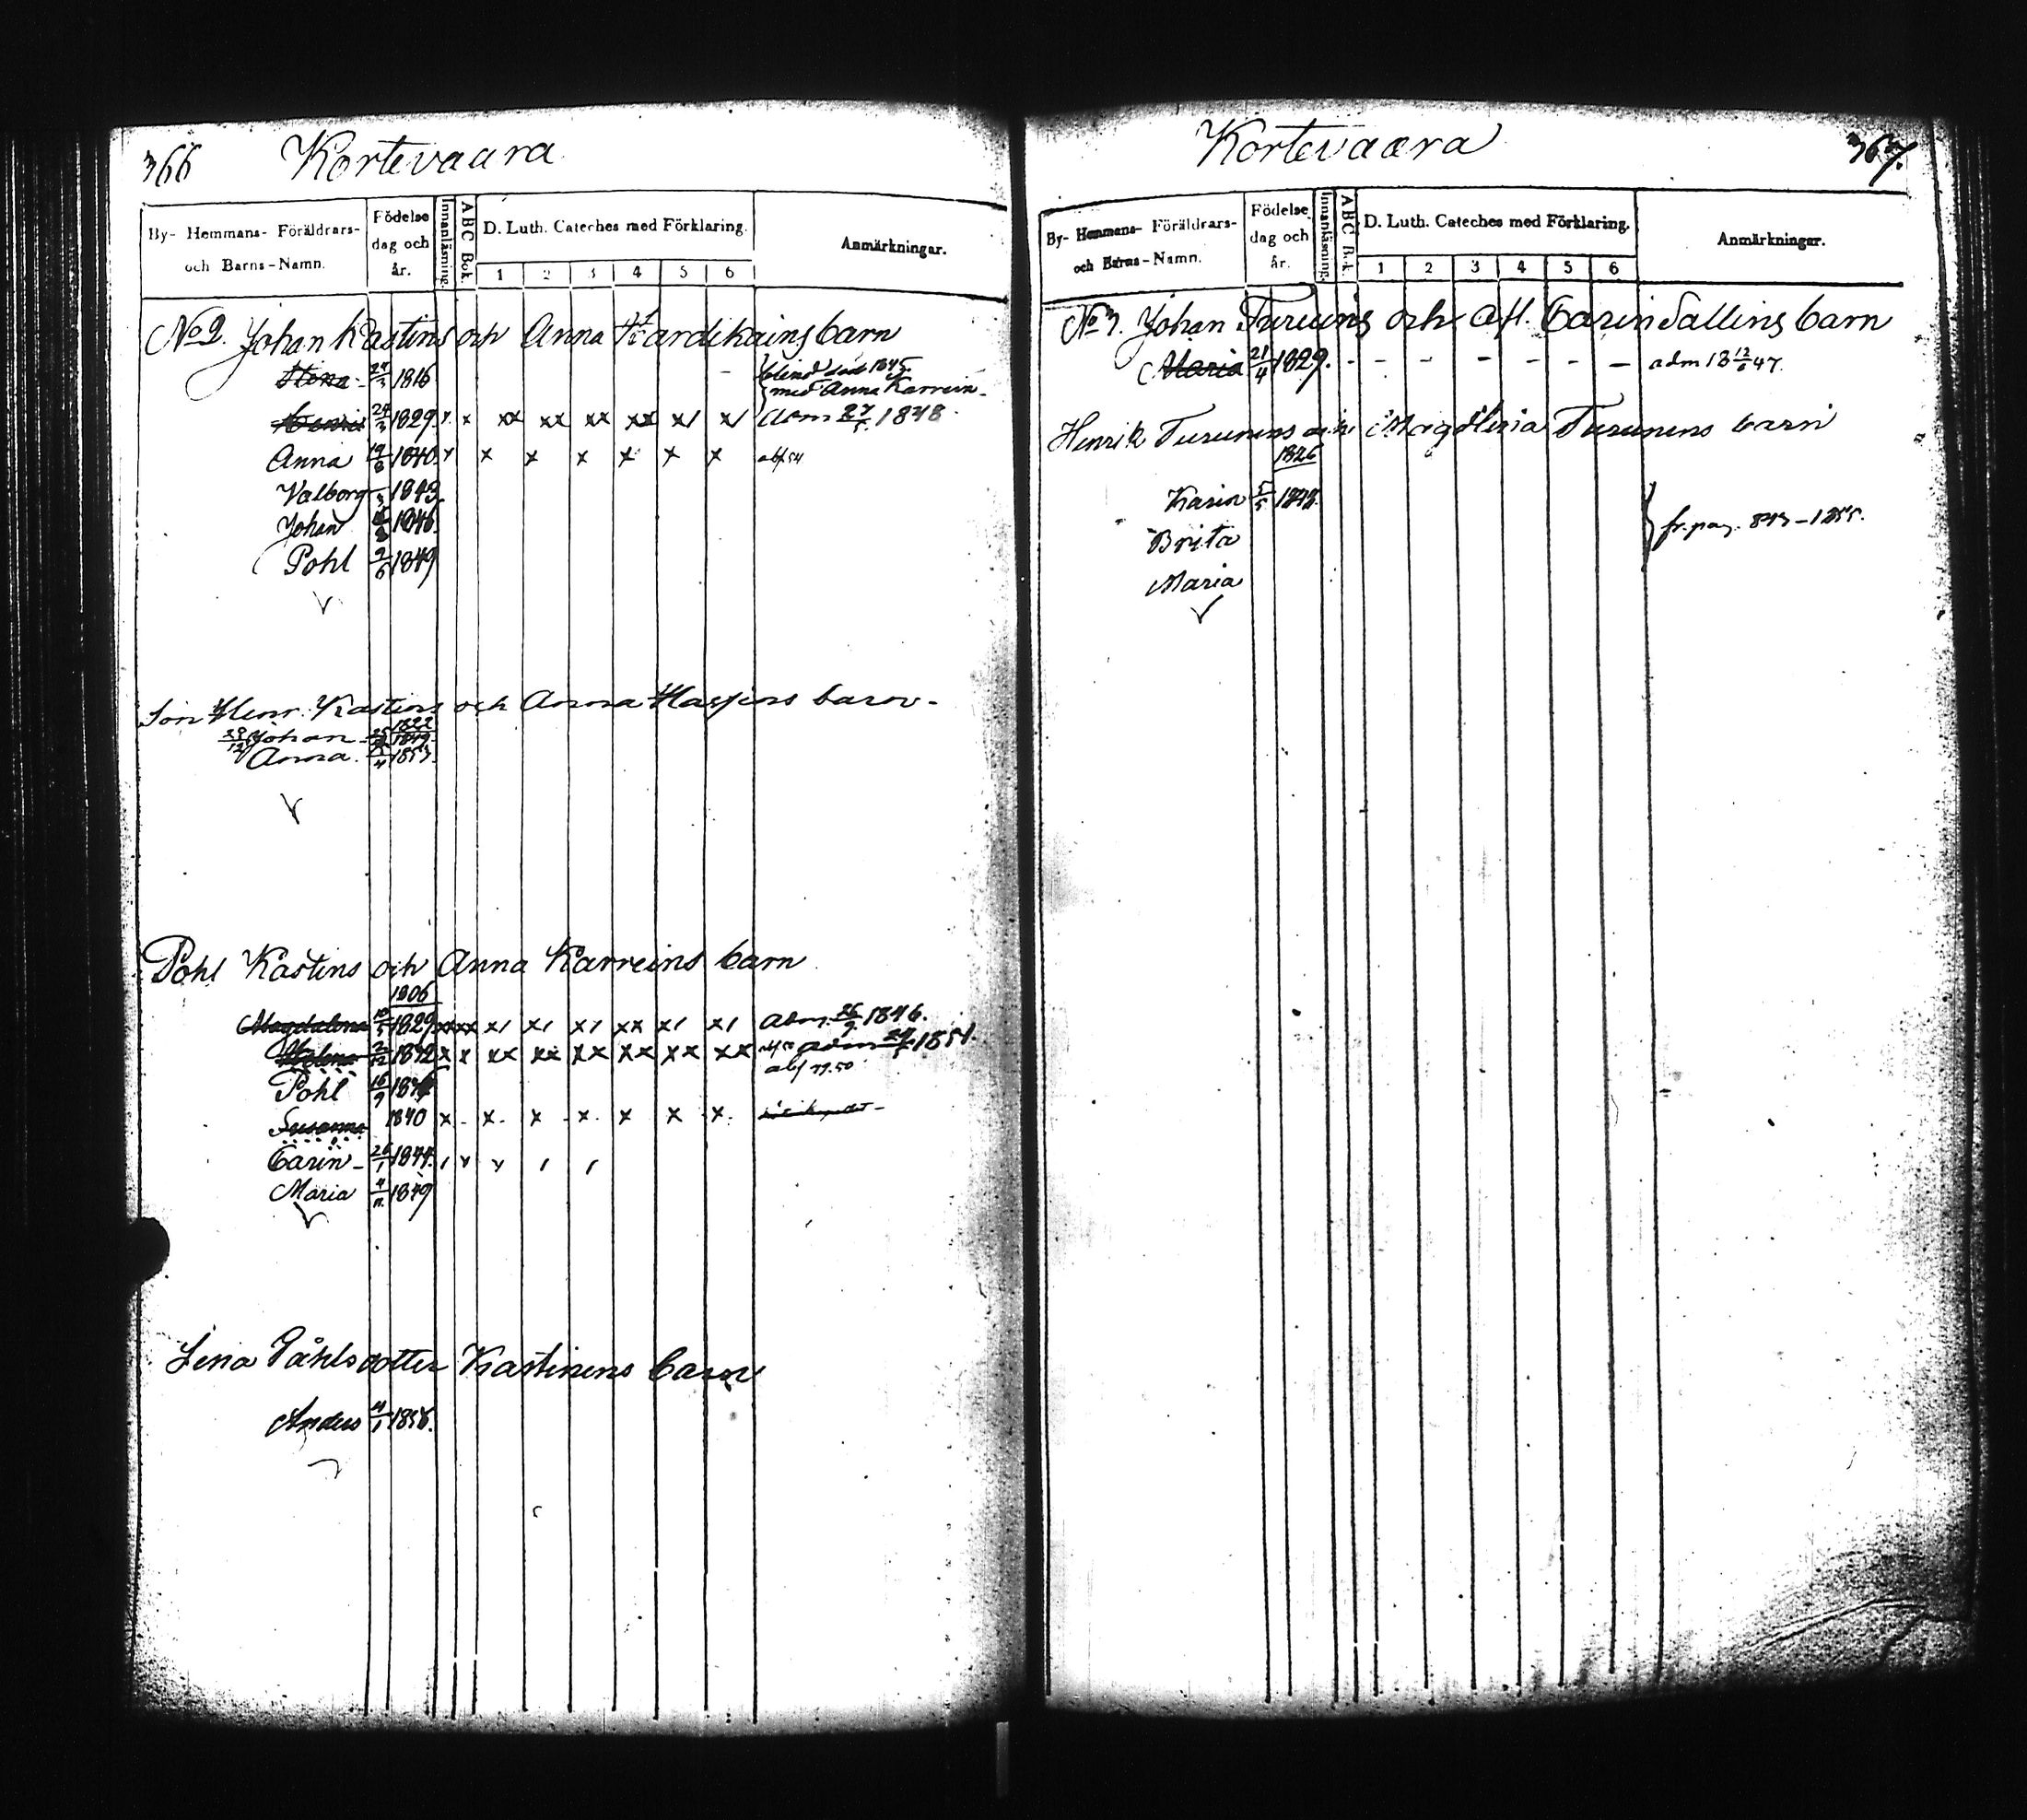 366 Kortevaara
By- Hemmans- Föräldrars- och Barns-Namn.
Födelse dag och år.
Innanläsning.
ABC Bok.
D. Luth. Cateches med Förklaring.
1 2 3 4 5 6
Anmärkningar.
No 2. Johan Kastins och Anna Hardikains barn
Stina 1816 blind
med Anna Karrein
1829 x x xx xx xx xx x/ x/ adm 27/5 1848
Anna 1840 x x x x x x x
Valborg 1843
Johan 1846.
Pohl 2/6 1849
Son Henr. Kastins och Anna barn
1822
Johan 1849
Anna 1853
Pohl Kastins och Anna Karreins barn
1806
Magdalena 10/5 1829 xx xx x/ x/ x/ xx x/ x/ adm. 26/9 1846.
Helena 1832 x x xx xx xx xx xx xx adm 1851.
Pohl 16/9
Susanna 1840 x x x x x x x
Carin 26/1 1844
Maria 4/11 1849
Lena Påhlsdotter Kastinens barn
Anders 1856.
Kortevaara 367.
By- Hemmans- Föräldrars- och Barns-Namn.
Födelse dag och år.
Innanläsning.
ABC Bok.
D. Luth. Cateches med Förklaring.
1 2 3 4 5 6
Anmärkningar.
No 3. Johan Turuins och Afl. Carin Sallins barn
Maria 21/4 1829. - - - - - - - adm 18 12/6 47.
Henrik Turunens och Magdlena Turunens barn
1826
Karin 5/5 1848.
Brita fr. pag. 843-1855.
Maria